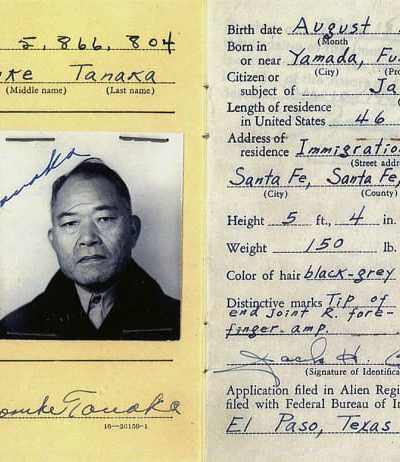 5, 866, 804
Tanaka
(Middle name) (Last name)
Tanaka
16—26150-1
Birth date August
(Month
Born in
or near Yamada, Fu
(City) (Pro
Citizen or
subject of Ja
Length of residence
in United States 46
Address of
residence Immigratio
(Street addre
Santa Fe, Santa Fe,
(City) (County)
Height 5 ft., 4 in.
Weight 150 lb.
Color of hair black-grey
Distinctive marks Tip of
end joint R. fore-
finger amp.
Jack H.
(Signature of Identifica
Application filed in Alien Regi
filed with Federal Bureau of In
El Paso, Texas